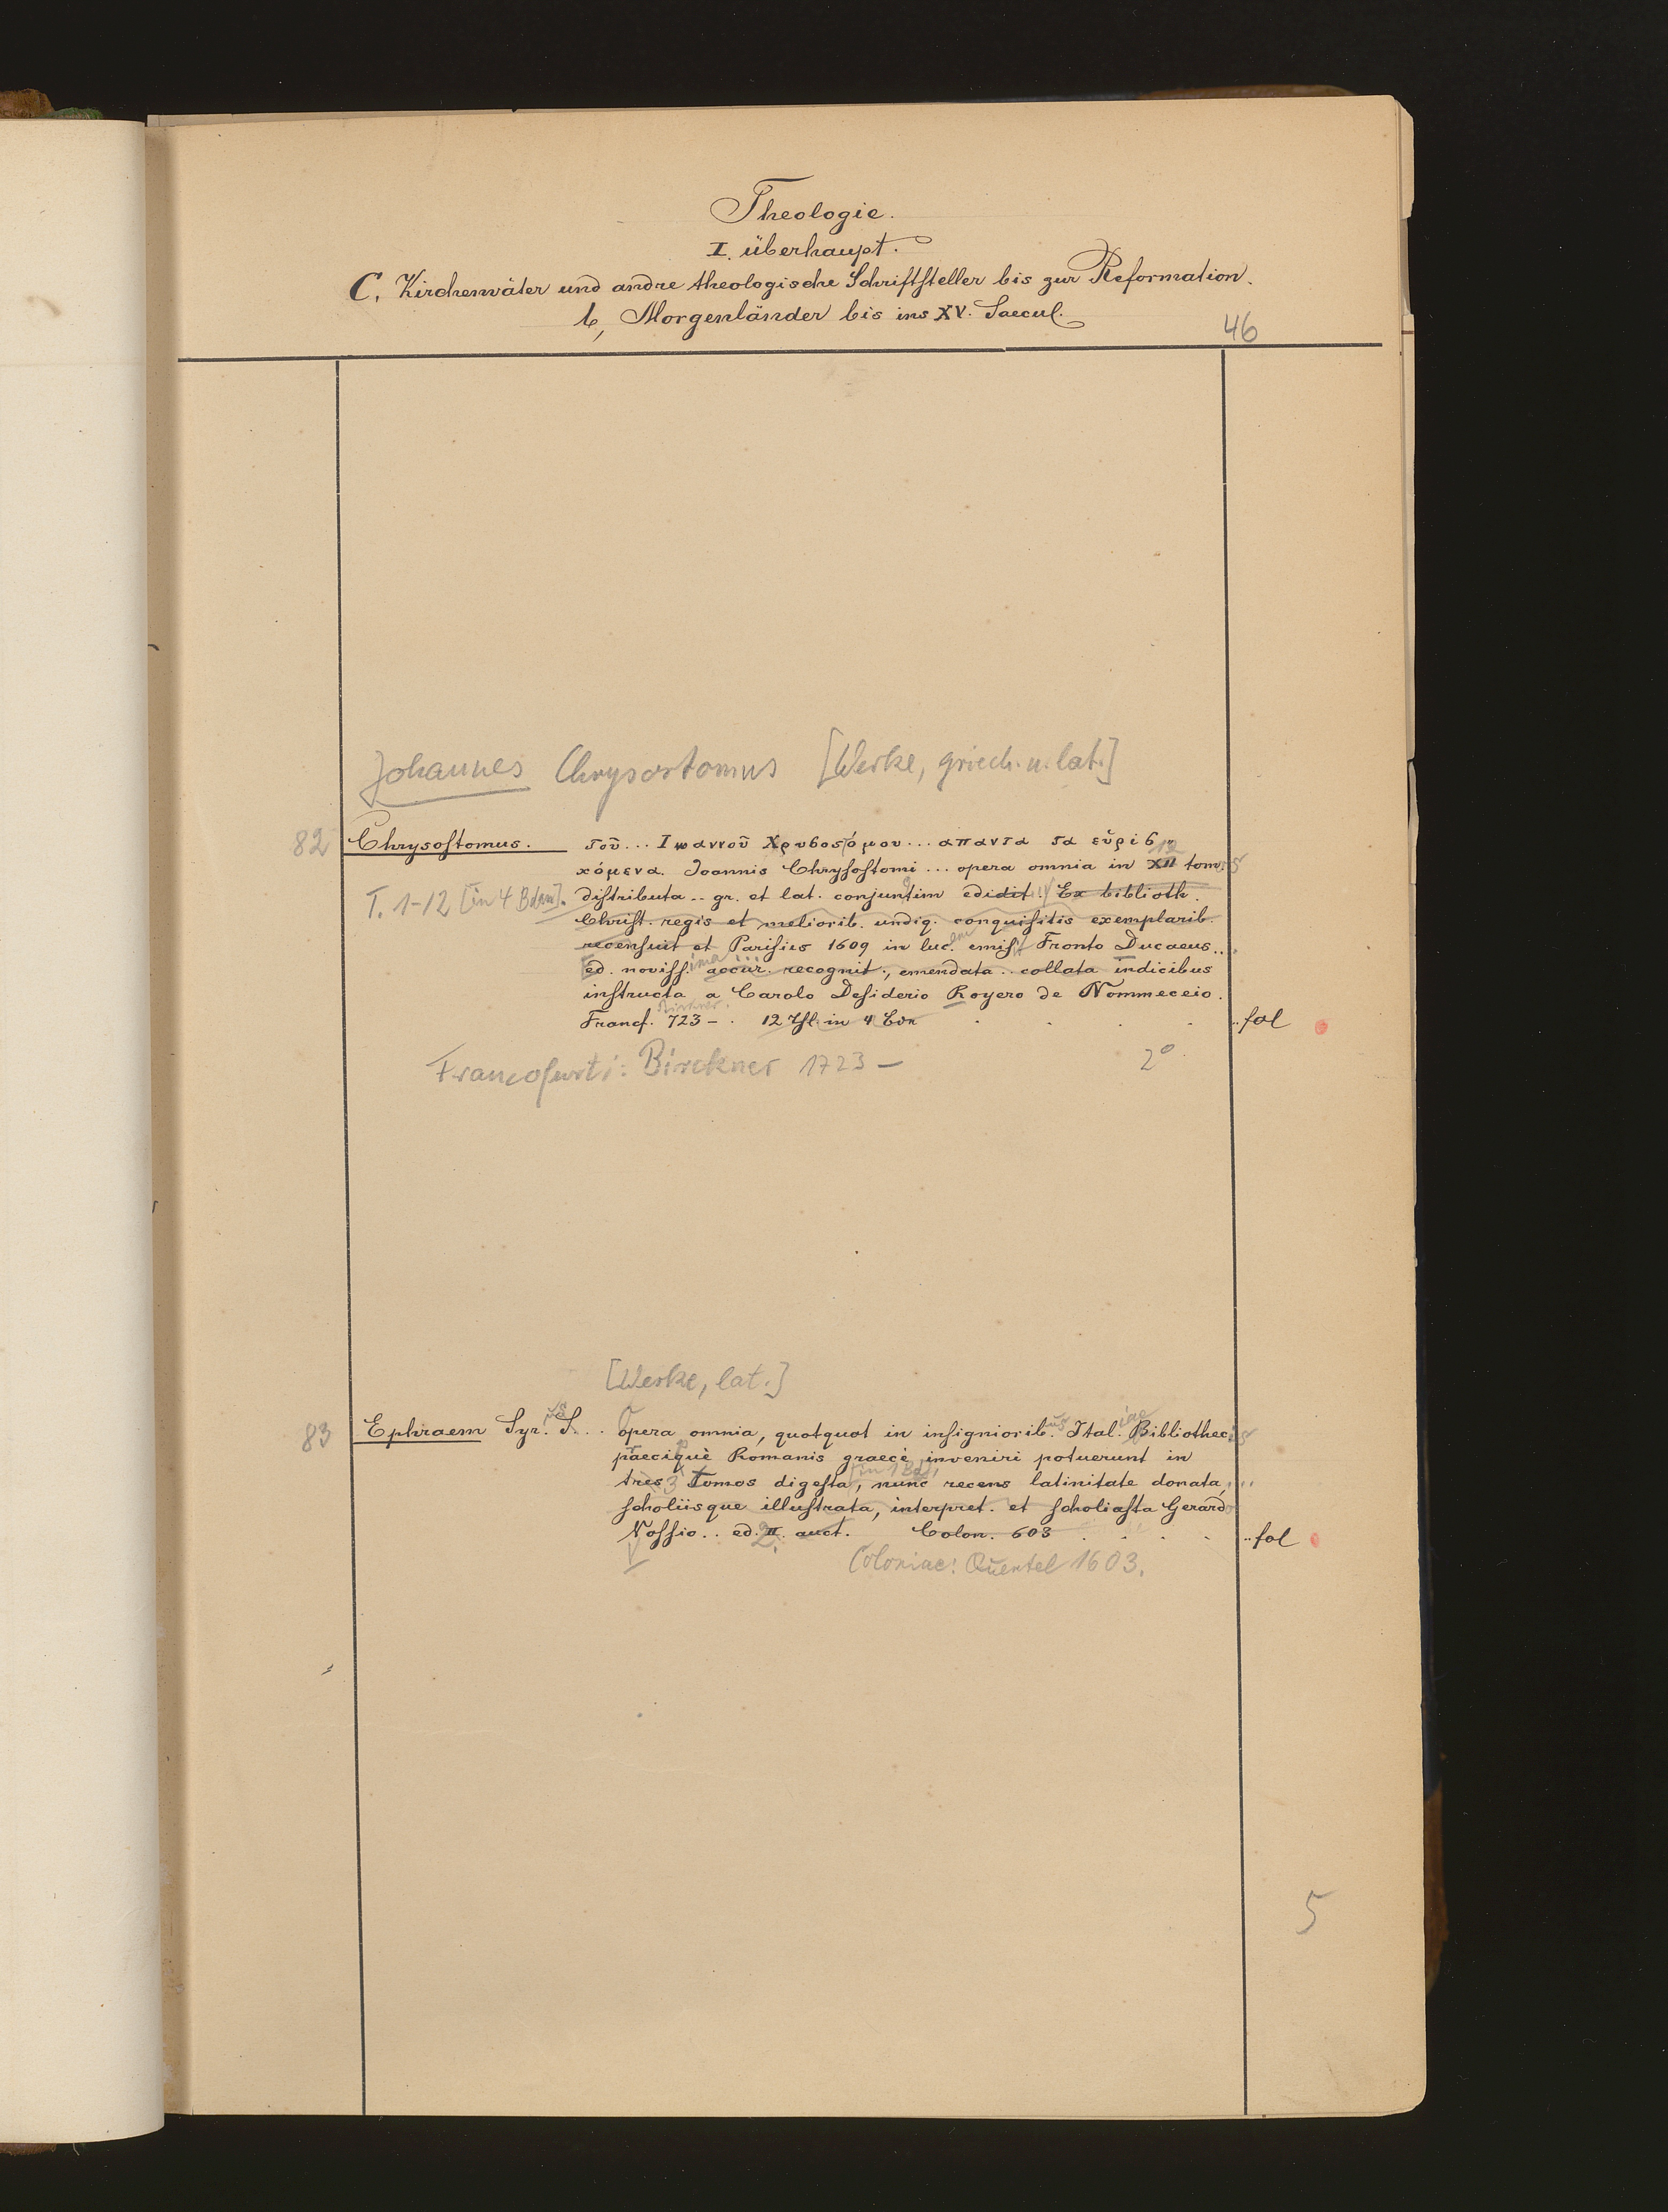 Theologie.
I. überhaupt.
C. Kirchenväter und andre theologische Schriftsteller bis zur Reformation.
b, Morgenländer bis ins XV. Saecul.
46
Johannes Chrysostomus [Werke, griech. u. lat.]
82 Chrysostomus. τοῦ... Ιωαννοῦ Χρυσοστόμου... απαντα τα εὑρισ
12
χόμενα. Joannis Chrysostomi... opera omnia in XII tomis
T. 1-12 [in 4 Bdn]. distributa .. gr. et lat. conjunctim edidit.. Ex biblioth.
Christ. regis et meliorib. undiq. conquisitis exemplarib.
recensuit et Parisiis 1609 in luc.em emisit Fronto Ducaeus...
Ed. novissima accur. recognit., emendata .. collata indicibus
instructa a Carolo Desiderio Royero de Nommeceio.
Francf. 723 - . 12 Thl. in 4 Bdn . . . . .. fol
Francofurti: Birckner 1723 – 2°.
[Werke, lat.]
83 Ephraem Syr.us S... Opera omnia, quotquot in insigniorib.us Ital.iae Bibliothecis
praecipuè Romanis graecè inveniri potuerunt in
tres 3 Tomos digesta [in 1 Bd], nunc recens latinitate donata, ...
scholiisque illustrata, interpret. et scholiasta Gerardo
Vossio.. ed. II. 2. auct. Colon. 603 . . . . .. fol
Coloniae: Quentel 1603.
5